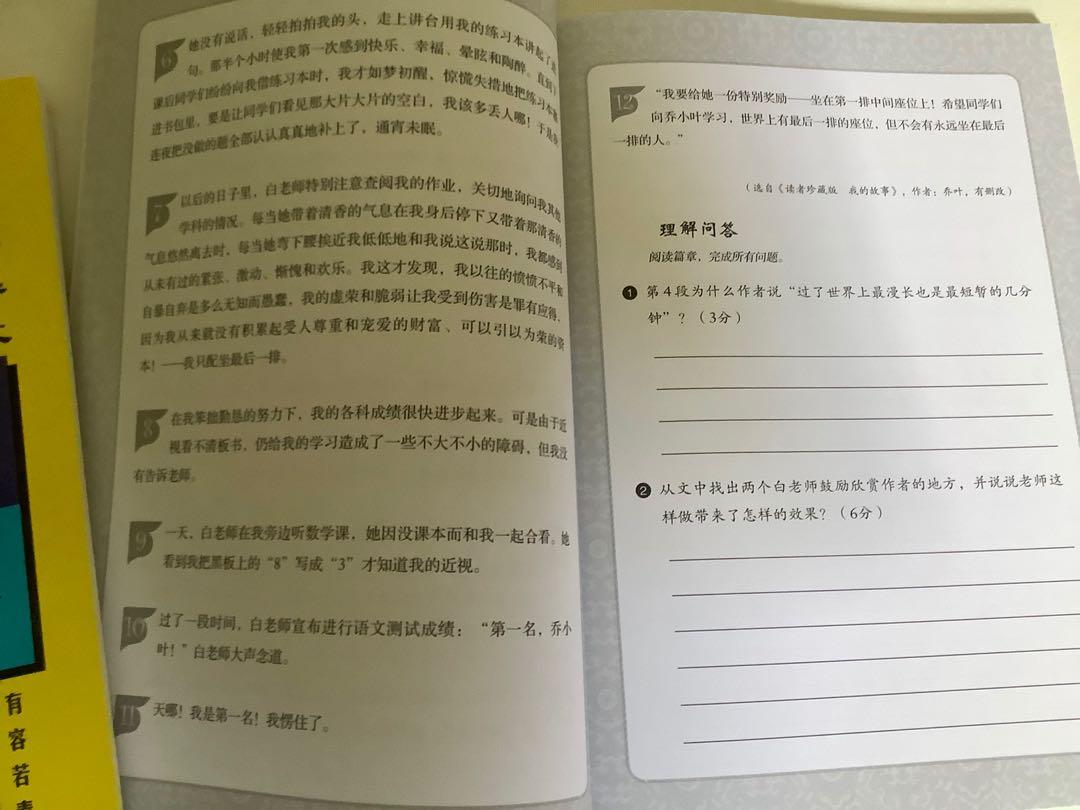 6
她没有说话，轻轻拍拍我的头，走上讲台用我的练习本讲起了
句。那半个小时使我第一次感到快乐、幸福、晕眩和陶醉。直到
课后同学们纷纷向我借练习本时，我才如梦初醒，惊慌失措地把练习本
进书包里，要是让同学们看见那大片大片的空白，我该多丢人哪！于是我
连夜把没做的题全部认认真真地补上了，通宵未眠。
7
以后的日子里，白老师特别注意查阅我的作业，关切地询问我其他
学科的情况。每当她带着清香的气息在我身后停下又带着那清香的
气息悠然离去时，每当她弯下腰挨近我低低地和我说这说那时，我都感到
从未有过的紧张、激动、惭愧和欢乐。我这才发现，我以往的愤愤不平和
自暴自弃是多么无知而愚蠢，我的虚荣和脆弱让我受到伤害是罪有应得，
因为我从来就没有积累起受人尊重和宠爱的财富、可以引以为荣的资
本！——我只配坐最后一排。
8
在我笨拙勤恳的努力下，我的各科成绩很快进步起来。可是由于近
视看不清板书，仍给我的学习造成了一些不大不小的障碍，但我没
有告诉老师。
9
一天，白老师在我旁边听数学课，她因没课本而和我一起合看。她
看到我把黑板上的“8”写成“3”才知道我的近视。
10
过了一段时间，白老师宣布进行语文测试成绩：“第一名，乔小
叶！”白老师大声念道。
11
天哪！我是第一名！我愣住了。
12
“我要给她一份特别奖励——坐在第一排中间座位上！希望同学们
向乔小叶学习，世界上有最后一排的座位，但不会有永远坐在最后
一排的人。”
（选自《读者珍藏版 我的故事》，作者：乔叶，有删改）
理解问答
阅读篇章，完成所有问题。
1 第4段为什么作者说“过了世界上最漫长也是最短暂的几分
钟”？（3分）
2 从文中找出两个白老师鼓励欣赏作者的地方，并说说老师这
样做带来了怎样的效果？（6分）
有
容
若